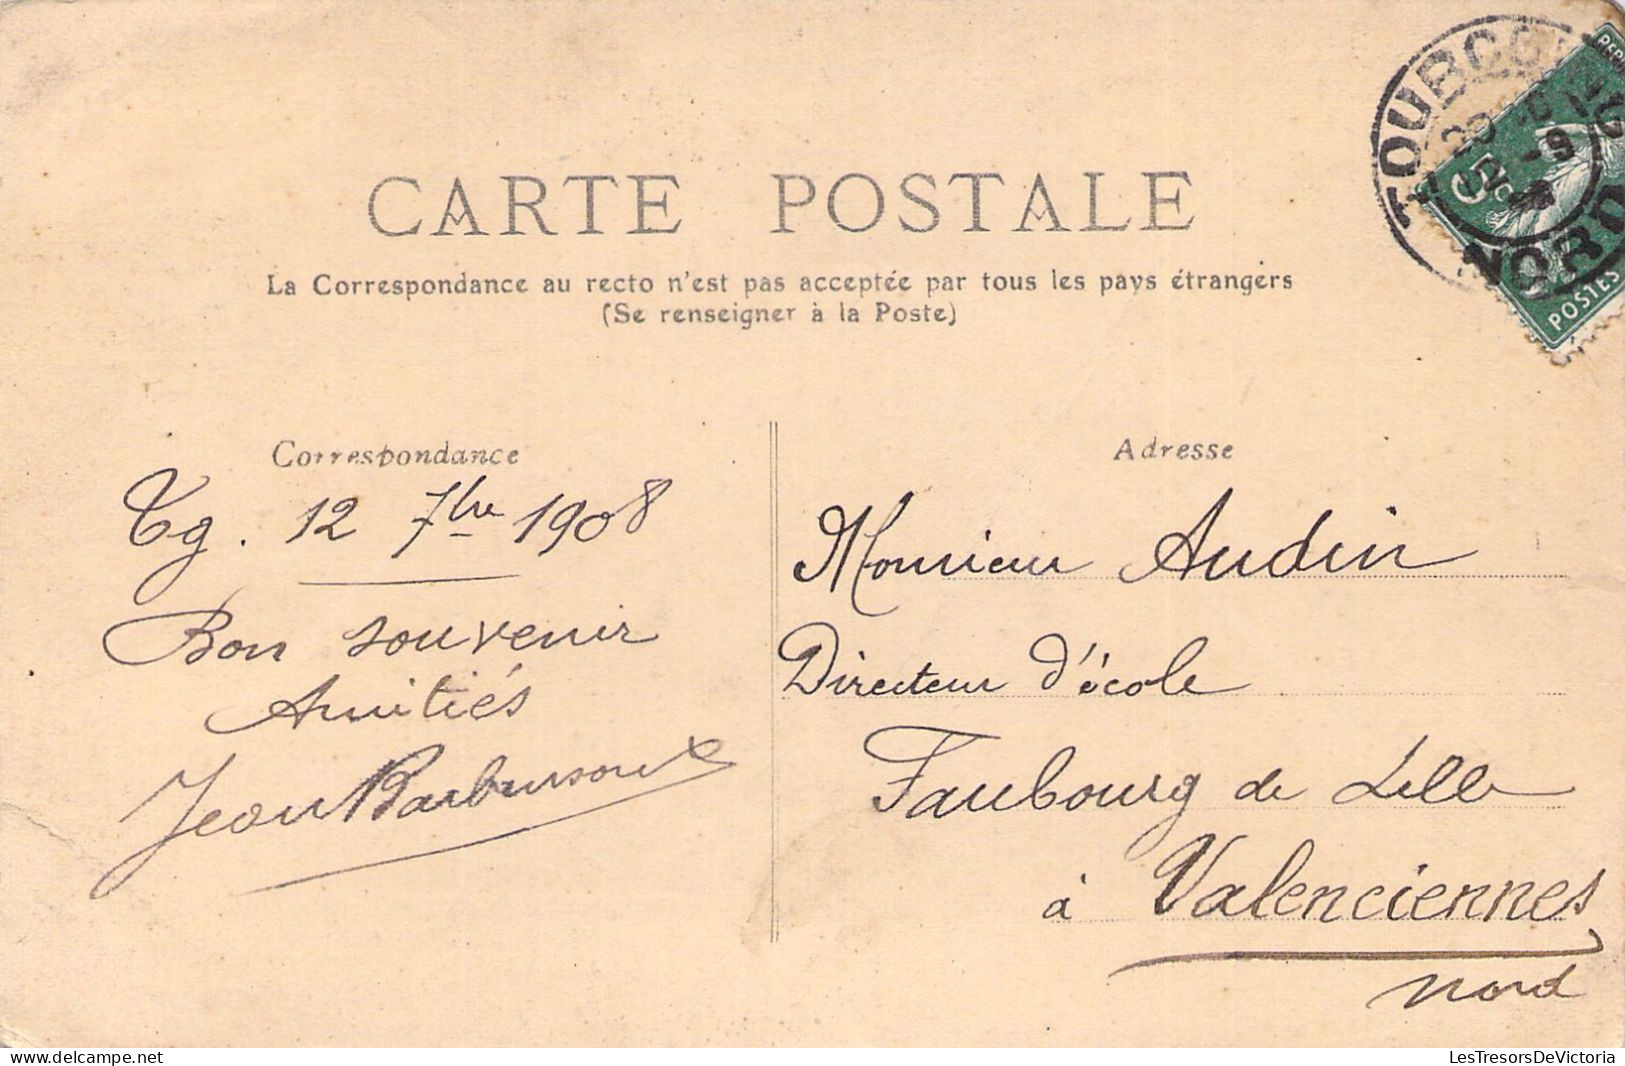 CARTE POSTALE
La Correspondance au recto n'est pas acceptée par tous les pays étrangers
(Se renseigner à la Poste)
TOURCOING
NORD
5
POSTES
Correspondance
Tg. 12 7bre 1908
Bon souvenir
Amitiés
Jean
Adresse
Monsieur Audin
Directeur d'école
Faubourg de Lille
à Valenciennes
Nord
LesTresorsDeVictoria